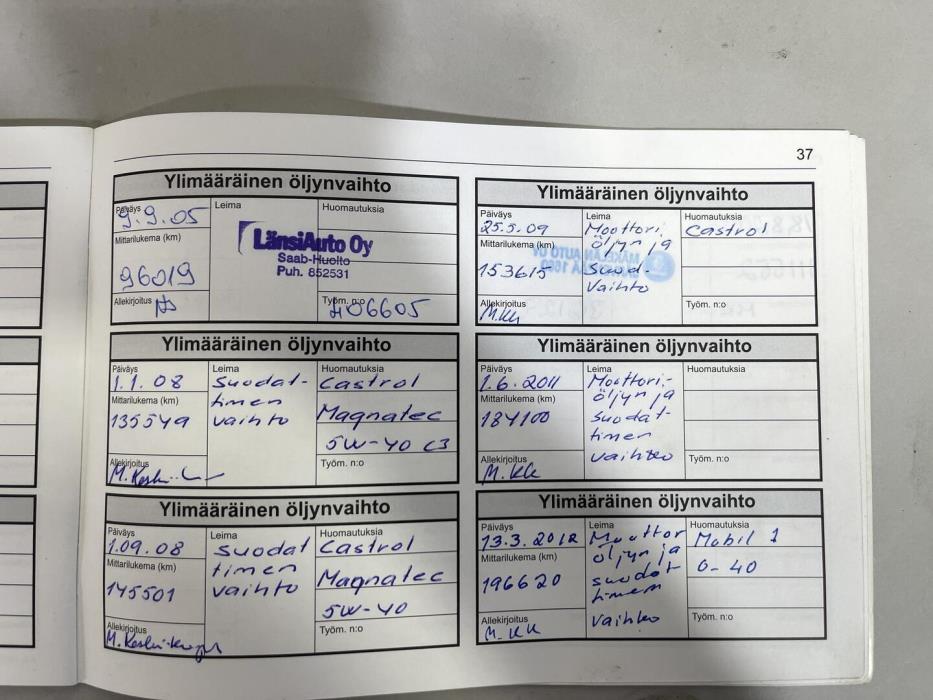 37
Ylimääräinen öljynvaihto
Päiväys
9.9.05
Leima
Huomautuksia
Mittarilukema (km)
96019
LänsiAuto Oy
Saab-Huolto
Puh. 852531
Allekirjoitus
Työm. n:o
406605
Ylimääräinen öljynvaihto
Päiväys
1.1.08
Mittarilukema (km)
135549
Allekirjoitus
Leima
suodat-
timen
vaihto
Huomautuksia
Castrol
Magnatec
5W-40 C3
Työm. n:o
Ylimääräinen öljynvaihto
Päiväys
1.09.08
Mittarilukema (km)
145501
Allekirjoitus
Leima
suodat
timen
vaihto
Huomautuksia
Castrol
Magnatec
5W-40
Työm. n:o
Ylimääräinen öljynvaihto
Päiväys
25.5.09
Mittarilukema (km)
153615
Allekirjoitus
M.KK
Leima
Moottori,
öljyn ja
suod-
vaihto
Huomautuksia
Castrol
Työm. n:o
Ylimääräinen öljynvaihto
Päiväys
1.6.2011
Mittarilukema (km)
184100
Allekirjoitus
M.KK
Leima
Moottori,-
öljyn ja
suodat-
timen
vaihto
Huomautuksia
Työm. n:o
Ylimääräinen öljynvaihto
Päiväys
13.3.2012
Mittarilukema (km)
196620
Allekirjoitus
M.KK
Leima
Moottor
öljyn ja
suodat
timen
vaihto
Huomautuksia
Mobil 1
0-40
Työm. n:o